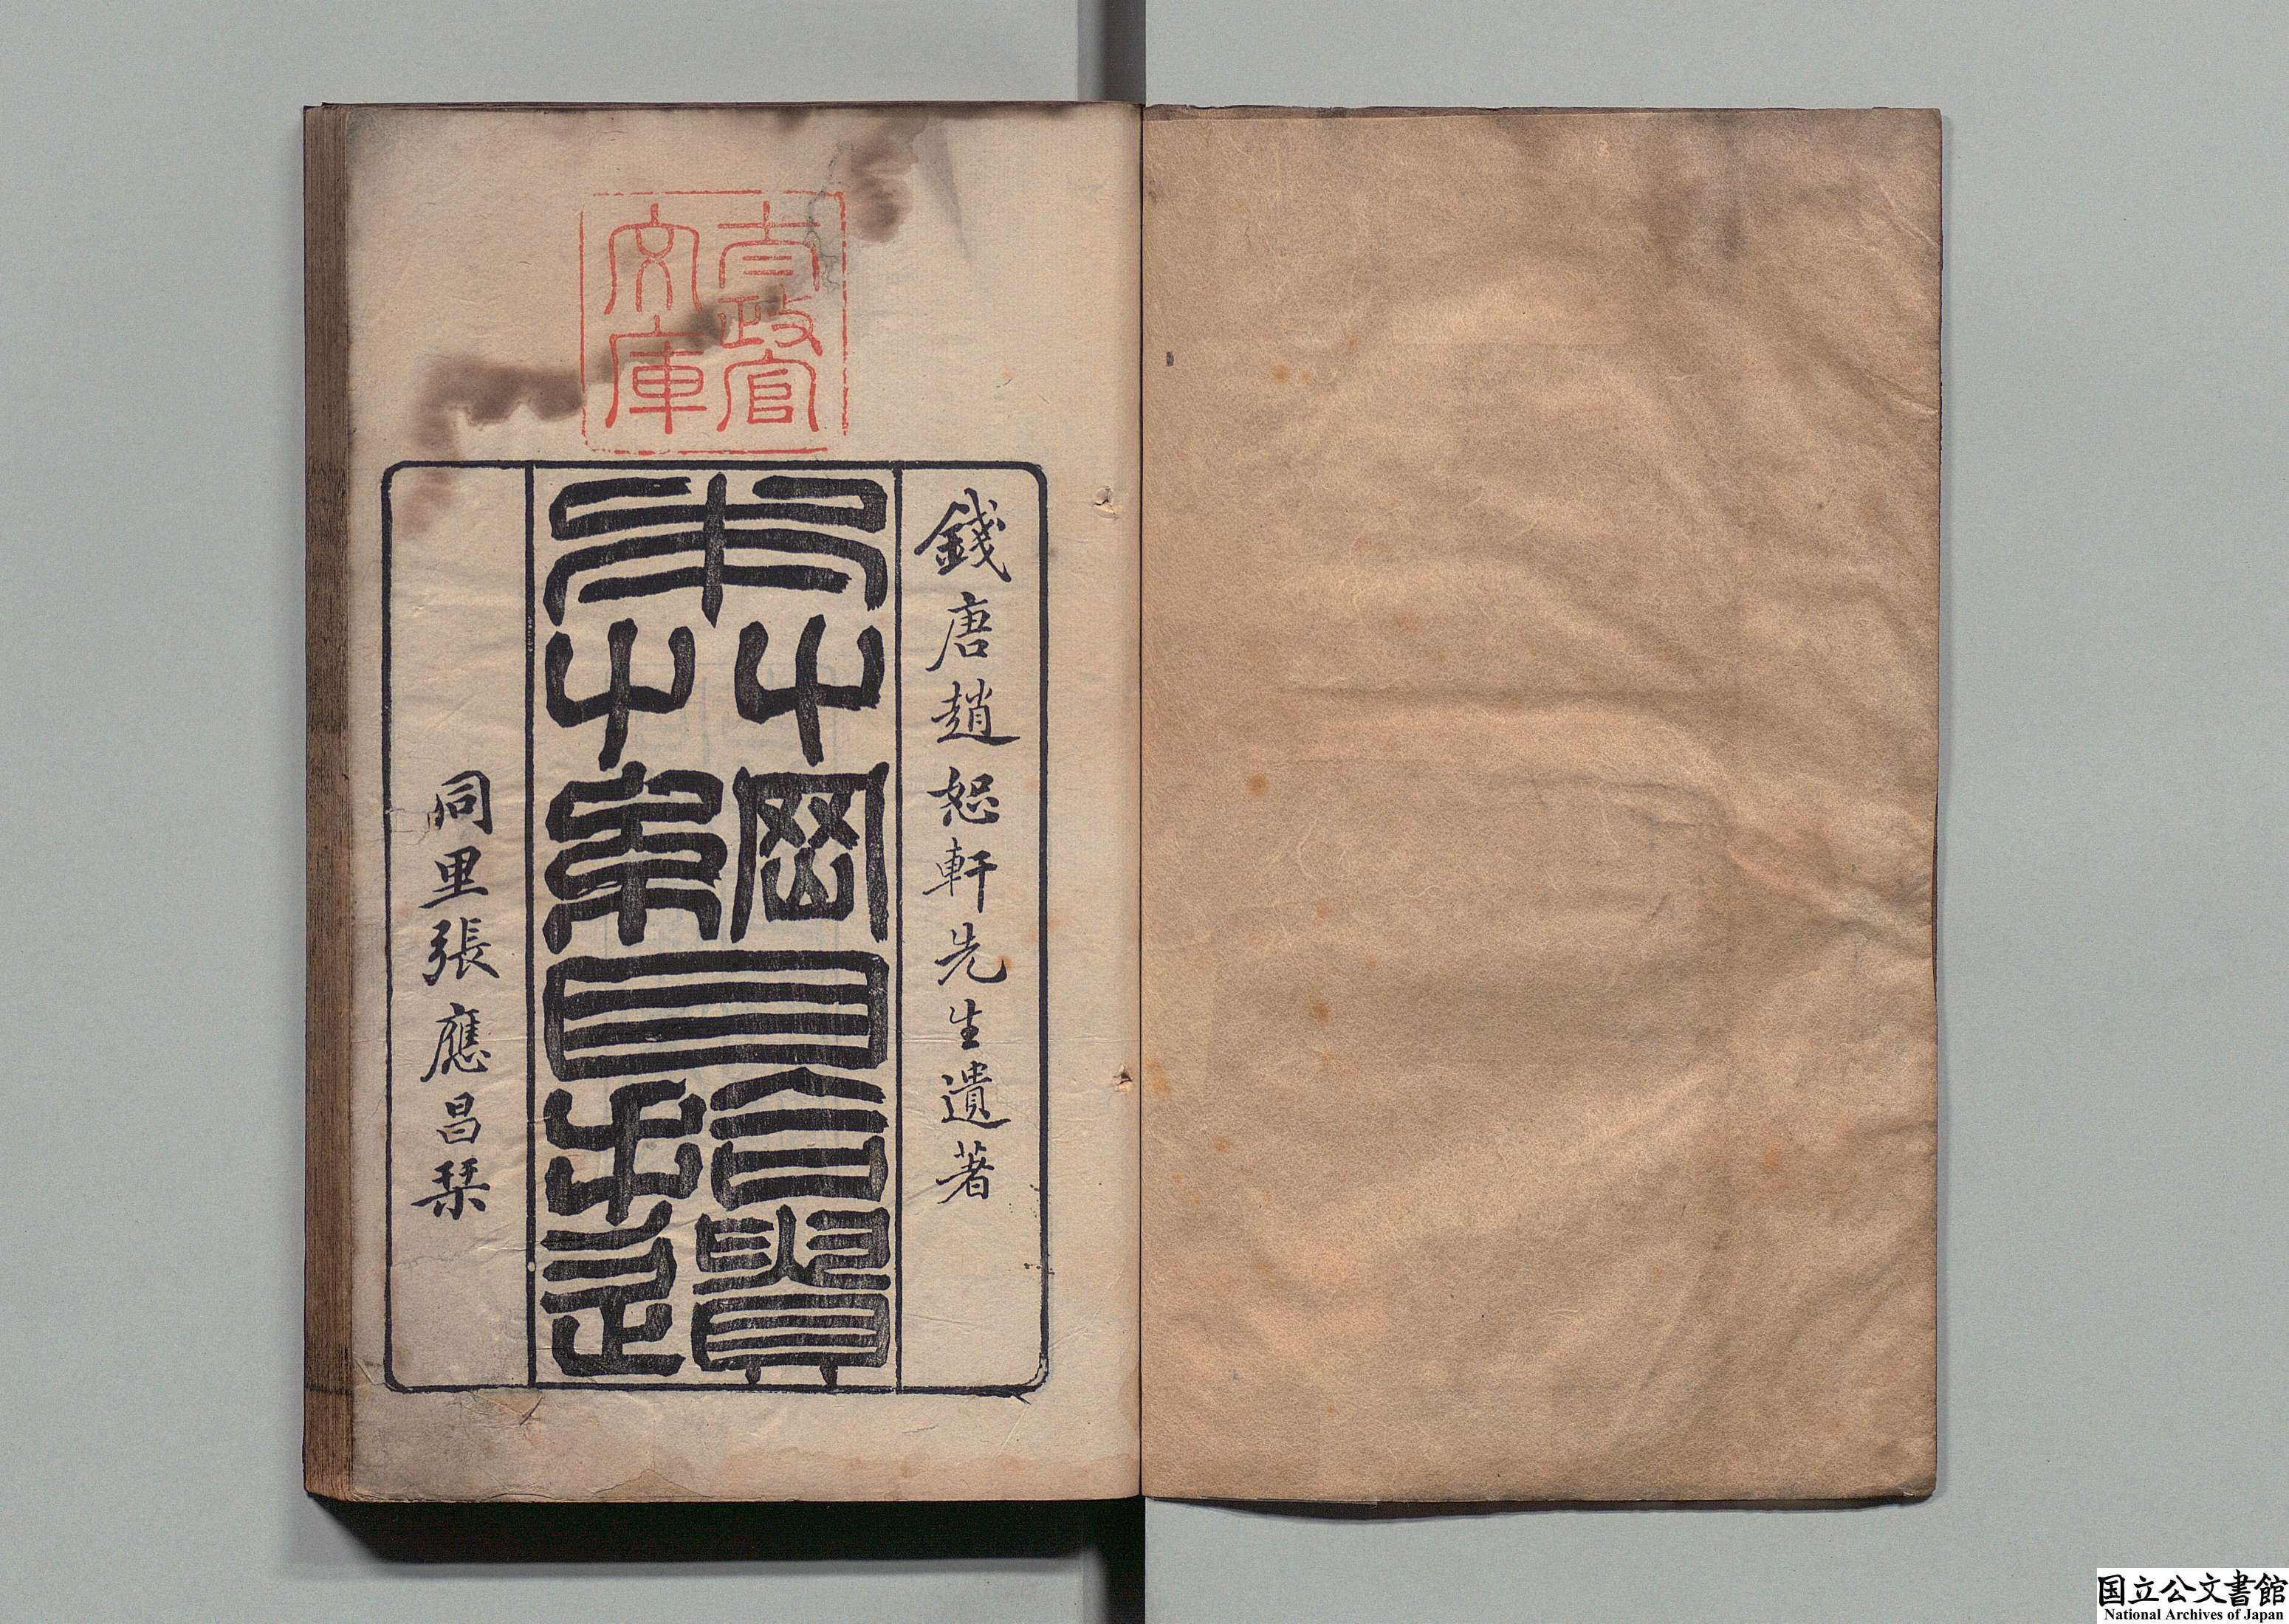 太政官
文庫
錢唐趙恕軒先生遺著
本艸綱目拾遺
同里張應昌栞
国立公文書館
National Archives of Japan